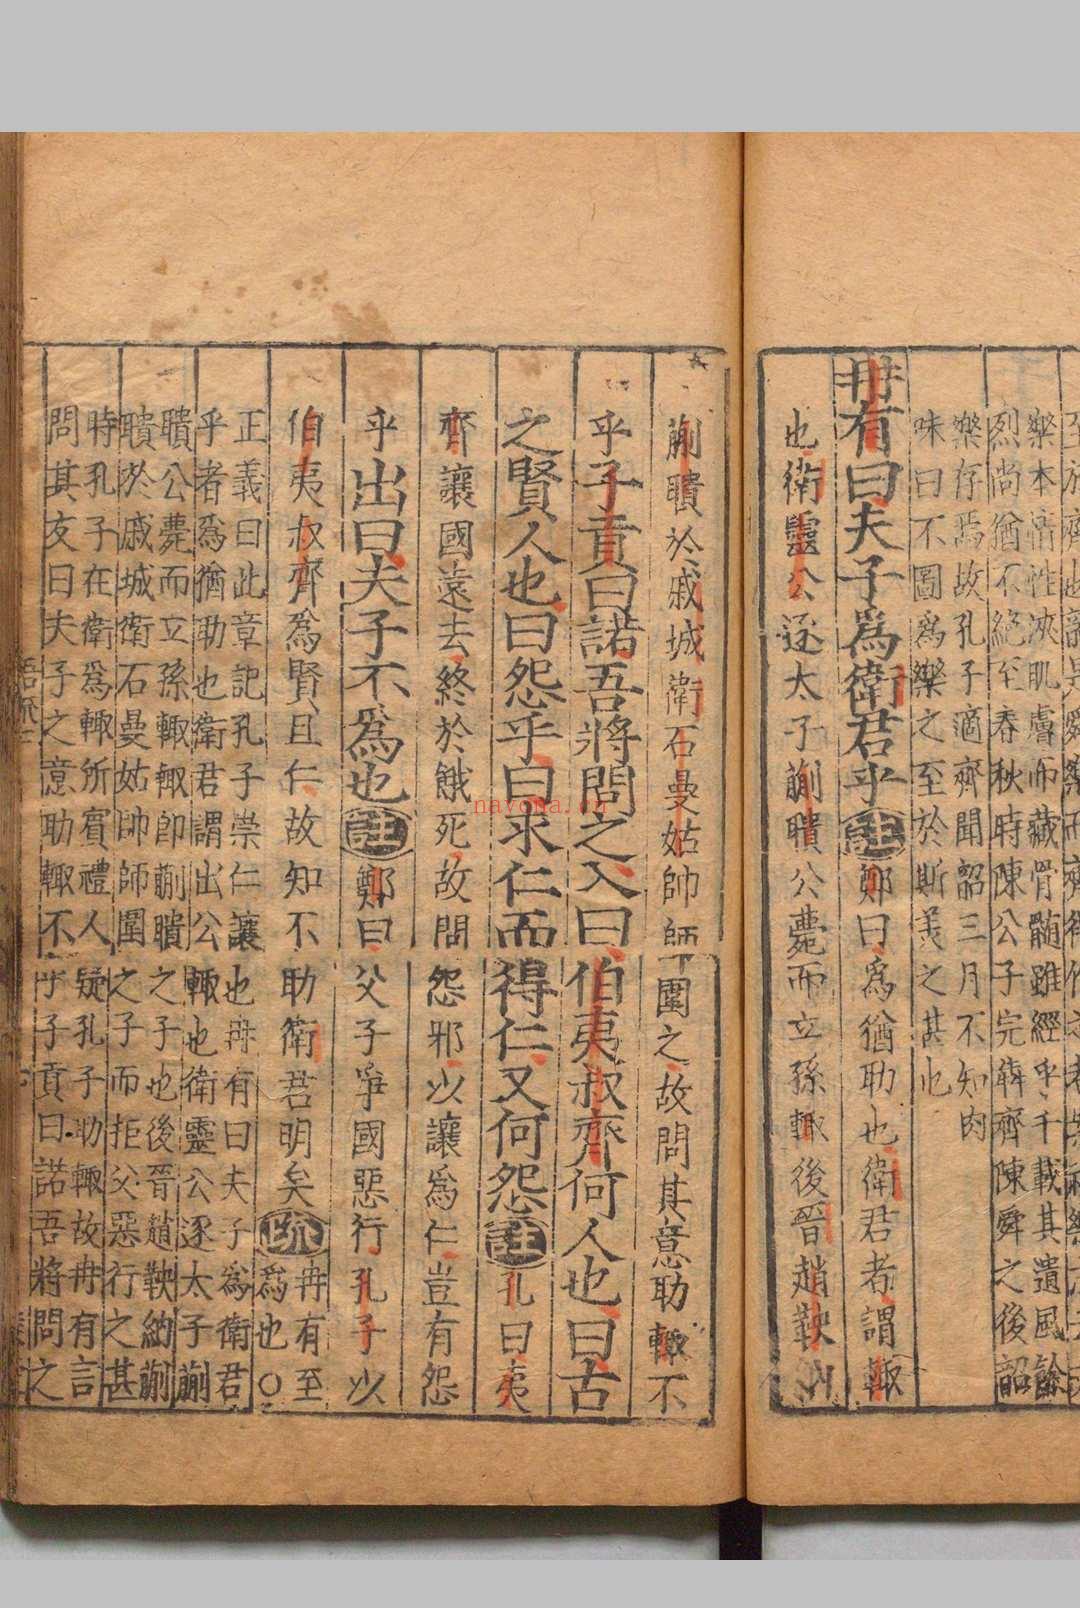 至於齊也
樂本清性浹肌膚而藏骨髓雖經乎千載其遺風餘
烈尚猶不絕至春秋時陳公子完犇齊陳舜之後韶
樂存焉故孔子適齊聞韶三月不知肉
味曰不圖為樂之至於斯美之甚也
冉有曰夫子為衛君乎註鄭曰為猶助也衛君者謂輒
也衛靈公逐太子蒯聵公薨而立孫輒後晉趙鞅納
蒯聵於戚城衛石曼姑帥師圍之故問其意助輒不
乎子貢曰諾吾將問之入曰伯夷叔齊何人也曰古
之賢人也曰怨乎曰求仁而得仁又何怨註孔曰夷
齊讓國遠去終於餓死故問怨邪以讓為仁豈有怨
乎出曰夫子不為也註鄭曰父子爭國惡行孔子以
伯夷叔齊為賢且仁故知不助衛君明矣疏冉有至
為也〇
正義曰此章記孔子崇仁讓也冉有曰夫子為衛君
乎者為猶助也衛君謂出公輒也衛靈公逐太子蒯
聵公薨而立孫輒輒即蒯聵之子也後晉趙鞅納蒯
聵於戚城衛石曼姑帥師圍之子而拒父惡行之甚
時孔子在衛為輒所賓禮人疑孔子助輒故冉有言
問其友曰夫子之意助輒不乎子貢曰諾吾將問之
navona.cn